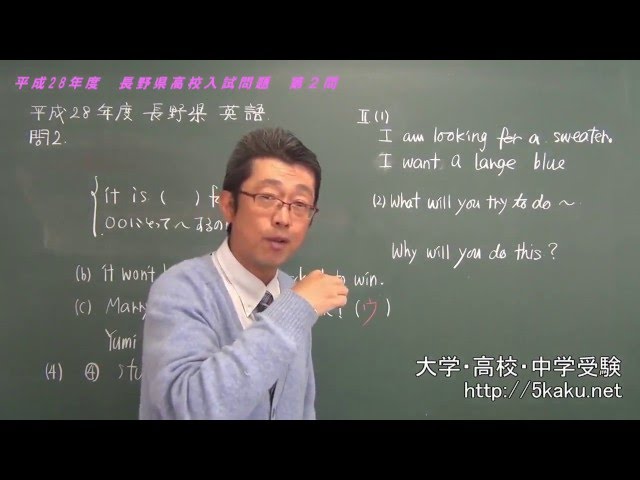 平成28年度 長野県高校入試問題 第2問
平成28年度 長野県 英語
問2.
it is ( ) f
○○にとって〜するの
(b) it won't to win.
(c) Marry ! (ウ)
Yumi
(4) ④ stu
II (1)
I am looking for a sweater.
I want a large blue
(2) What will you try to do ~
Why will you do this?
大学・高校・中学受験
http://5kaku.net